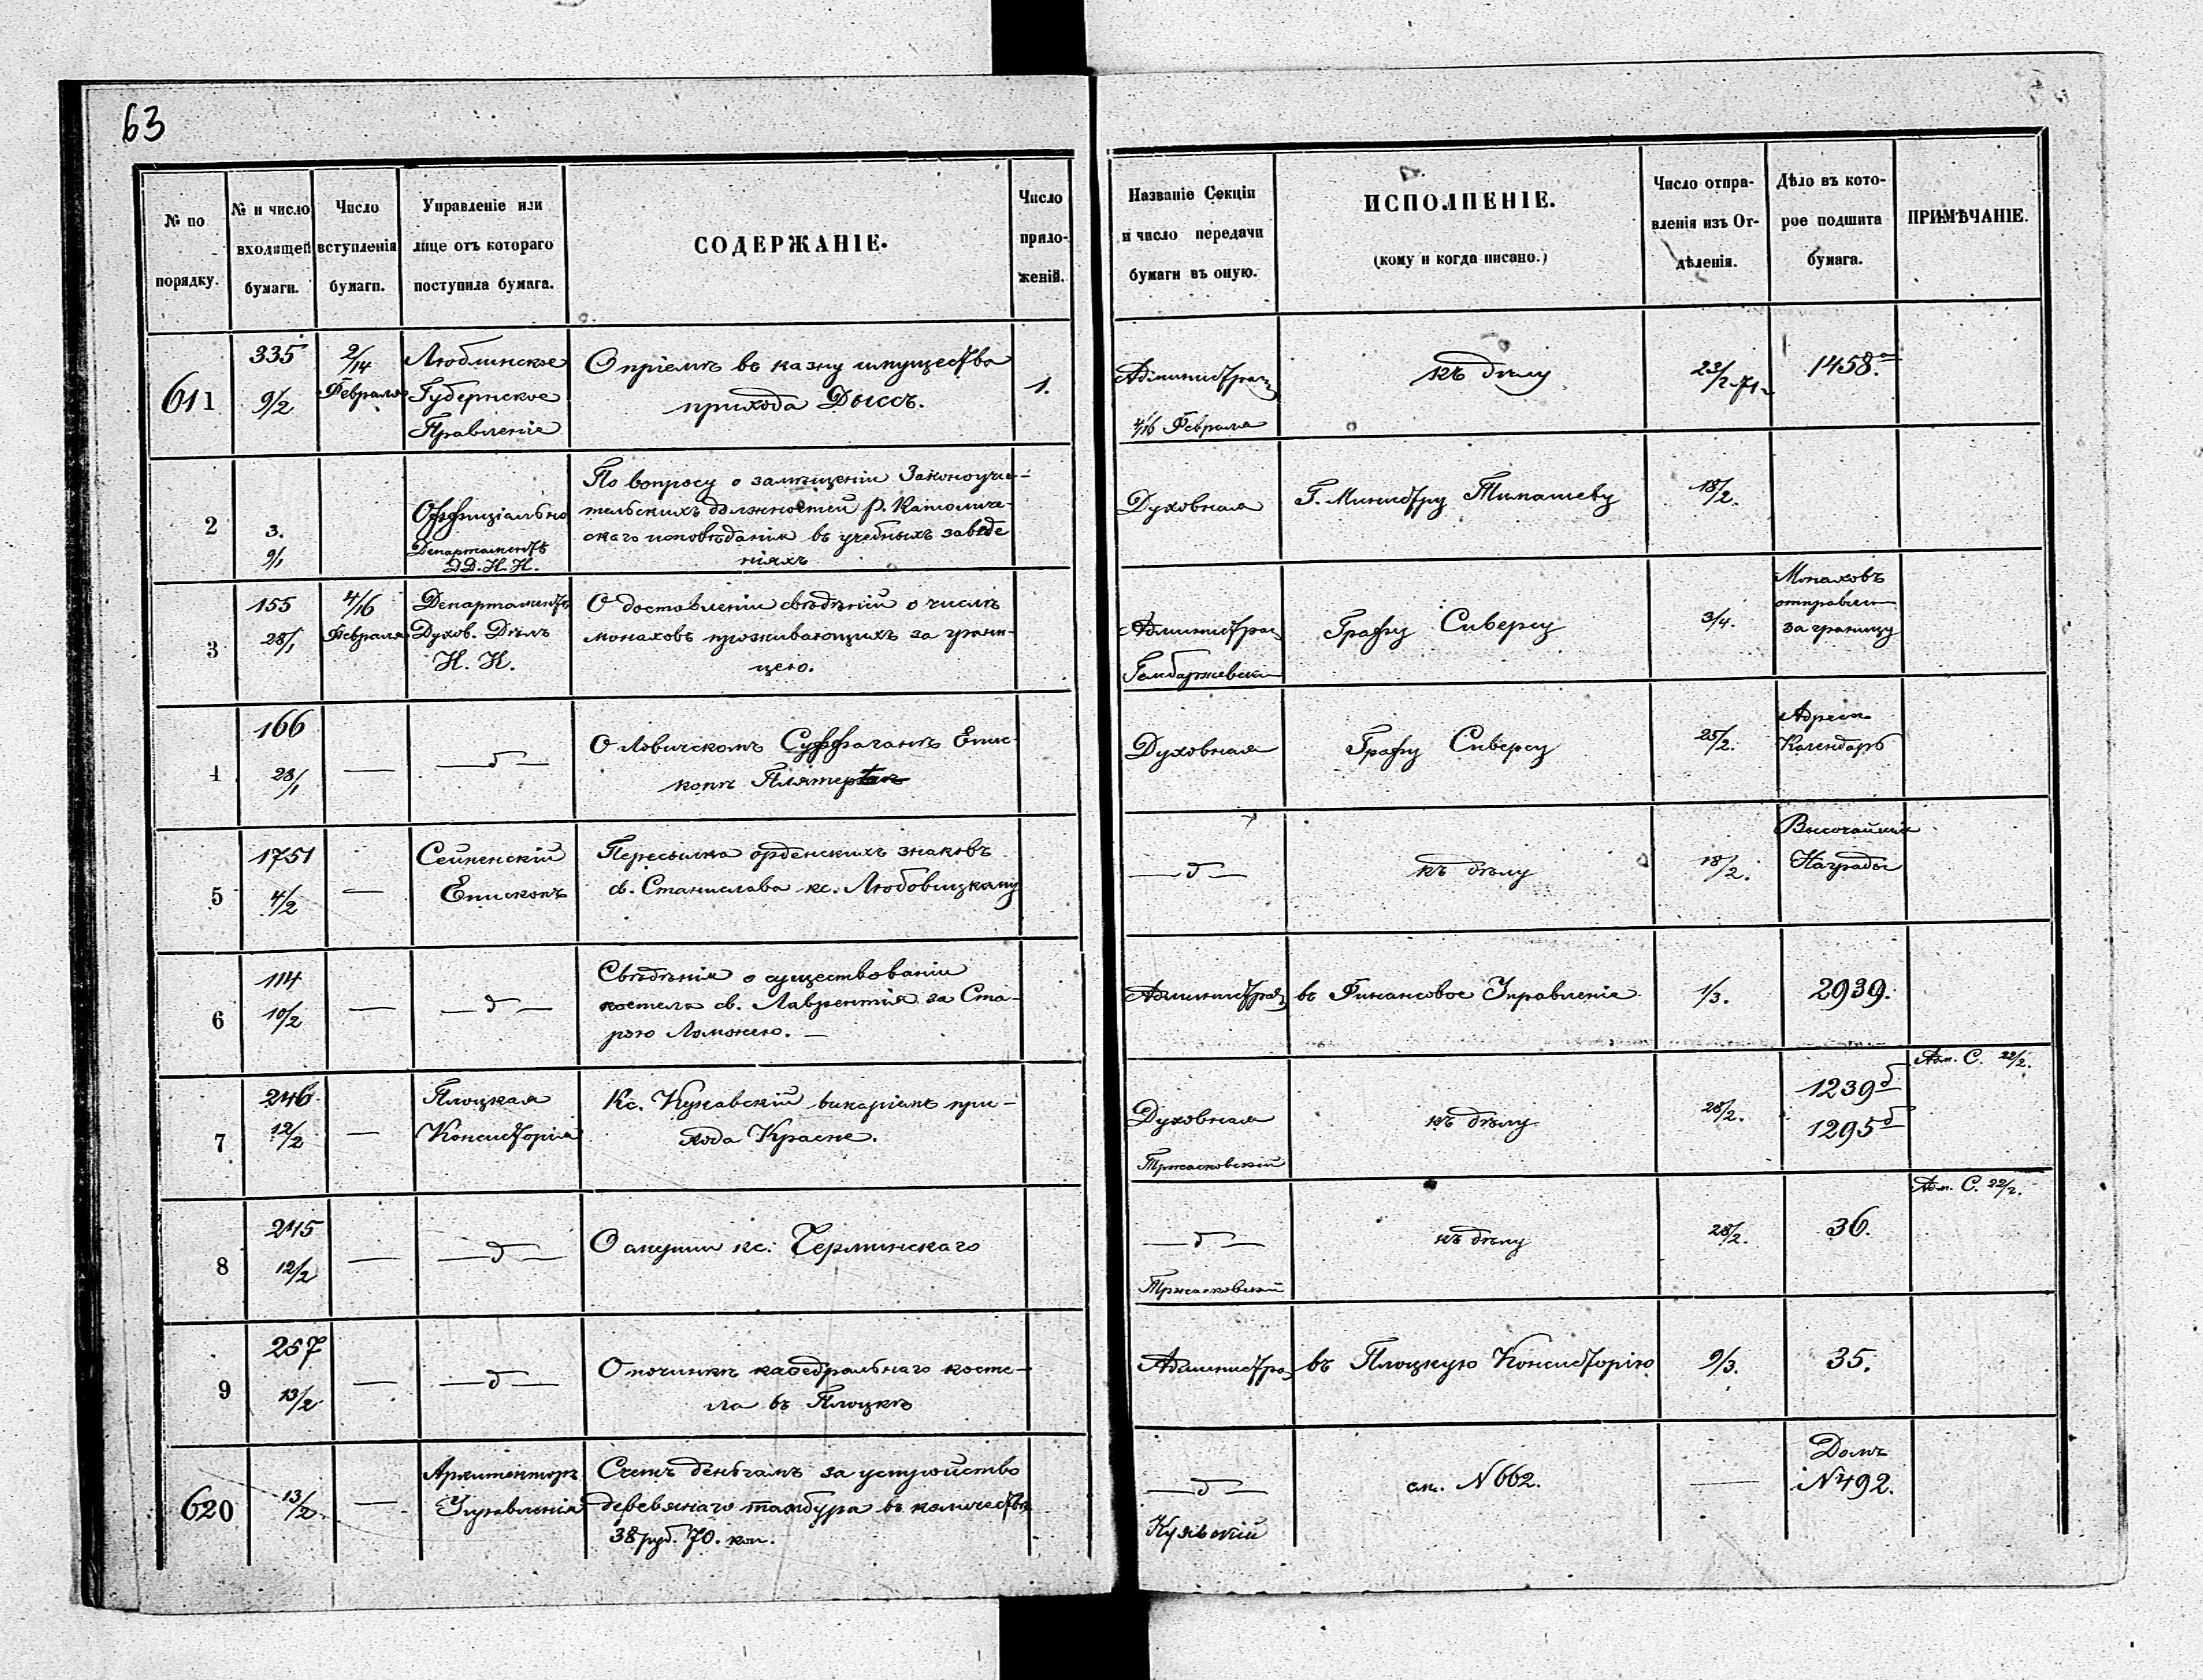 63
№ по порядку.
№ и число входящей бумаги.
Число вступленія бумаги.
Управленіе или лице отъ котораго поступила бумага.
СОДЕРЖАНІЕ.
Число приложеній.
Названіе Секціи и число передачи бумаги въ оную.
ИСПОЛНЕНІЕ.
(кому и когда писано.)
Число отправленія изъ Отдѣленія.
Дѣло въ которое подшита бумага.
ПРИМѢЧАНІЕ.
611
335
9/2
2/14
Февраля
Люблинское
Губернское
Правленіе
О пріемѣ въ казну имущества
прихода Дысъ.
1.
Администрац
4/16 Февраля
къ дѣлу
23/2 71
1458.а
2
3.
9/1
Оффиціально
Департаментъ
ДД. И. И.
По вопросу о замѣщеніи Законоучи-
тельскихъ должностей р. Католиче-
скаго исповѣданія въ учебныхъ заведе
ніяхъ
Духовная
Г. Министру Тимашеву
18/2.
3
155
28/1
4/16
Февраля
Департаментъ
Духов. Дѣлъ
И. И.
О доставленіи свѣдѣній о числѣ
монаховъ проживающихъ за грани-
цею.
Администрац
Графу Сиверсу
3/4.
Монаховъ
отправлен
за границу
4
166
28/1
—
— д —
О Ловичскомъ Суффраганѣ Епис-
копѣ Плятерѣ
Духовная
Графу Сиверсу
25/2.
Адресъ
Календарь
5
1751
4/2
—
Сейненскій
Епископъ
Пересылка орденскихъ знаковъ
св. Станислава кс. Любовицкому
— д —
къ дѣлу
18/2.
Высочайшія
Награды
6
114
10/2
—
— д —
Свѣдѣнія о существованіи
костела св. Лаврентія за Ста-
рою Ломжею. —
Администрац
въ Финансовое Управленіе
1/3.
2939.
7
246
12/2
—
Плоцкая
Консисторія
Кс. Кукавскій викаріемъ при-
хода Красне.
Духовная
Тржасковскій
къ дѣлу
28/2.
1239б
1295б
Адм. С. 22/2.
8
245
12/2
—
— д —
О смерти кс. Черминскаго
— д —
Тржасковскій
къ дѣлу
28/2.
36.
Адм. С. 22/2.
9
257
13/2
—
— д —
О починкѣ каѳедральнаго косте-
ла въ Плоцкѣ
Администрац
въ Плоцкую Консисторію
9/3.
35.
620
13/2
—
Архитекторъ
Управленія
Счетъ деньгамъ за устройство
деревянаго тамбура въ количествѣ
38 руб. 70. коп.
— д —
см. N 662.
—
Домъ
N 492.